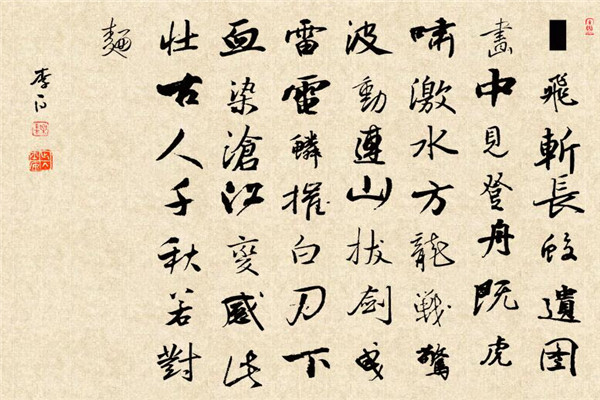 飛斬長蛟遺圖
畫中見登舟既虎
嘯激水方龍戰驚
波動連山拔劍曳
雷電鱗摧白刃下
血染滄江變感此
壯古人千秋若對
麵
李